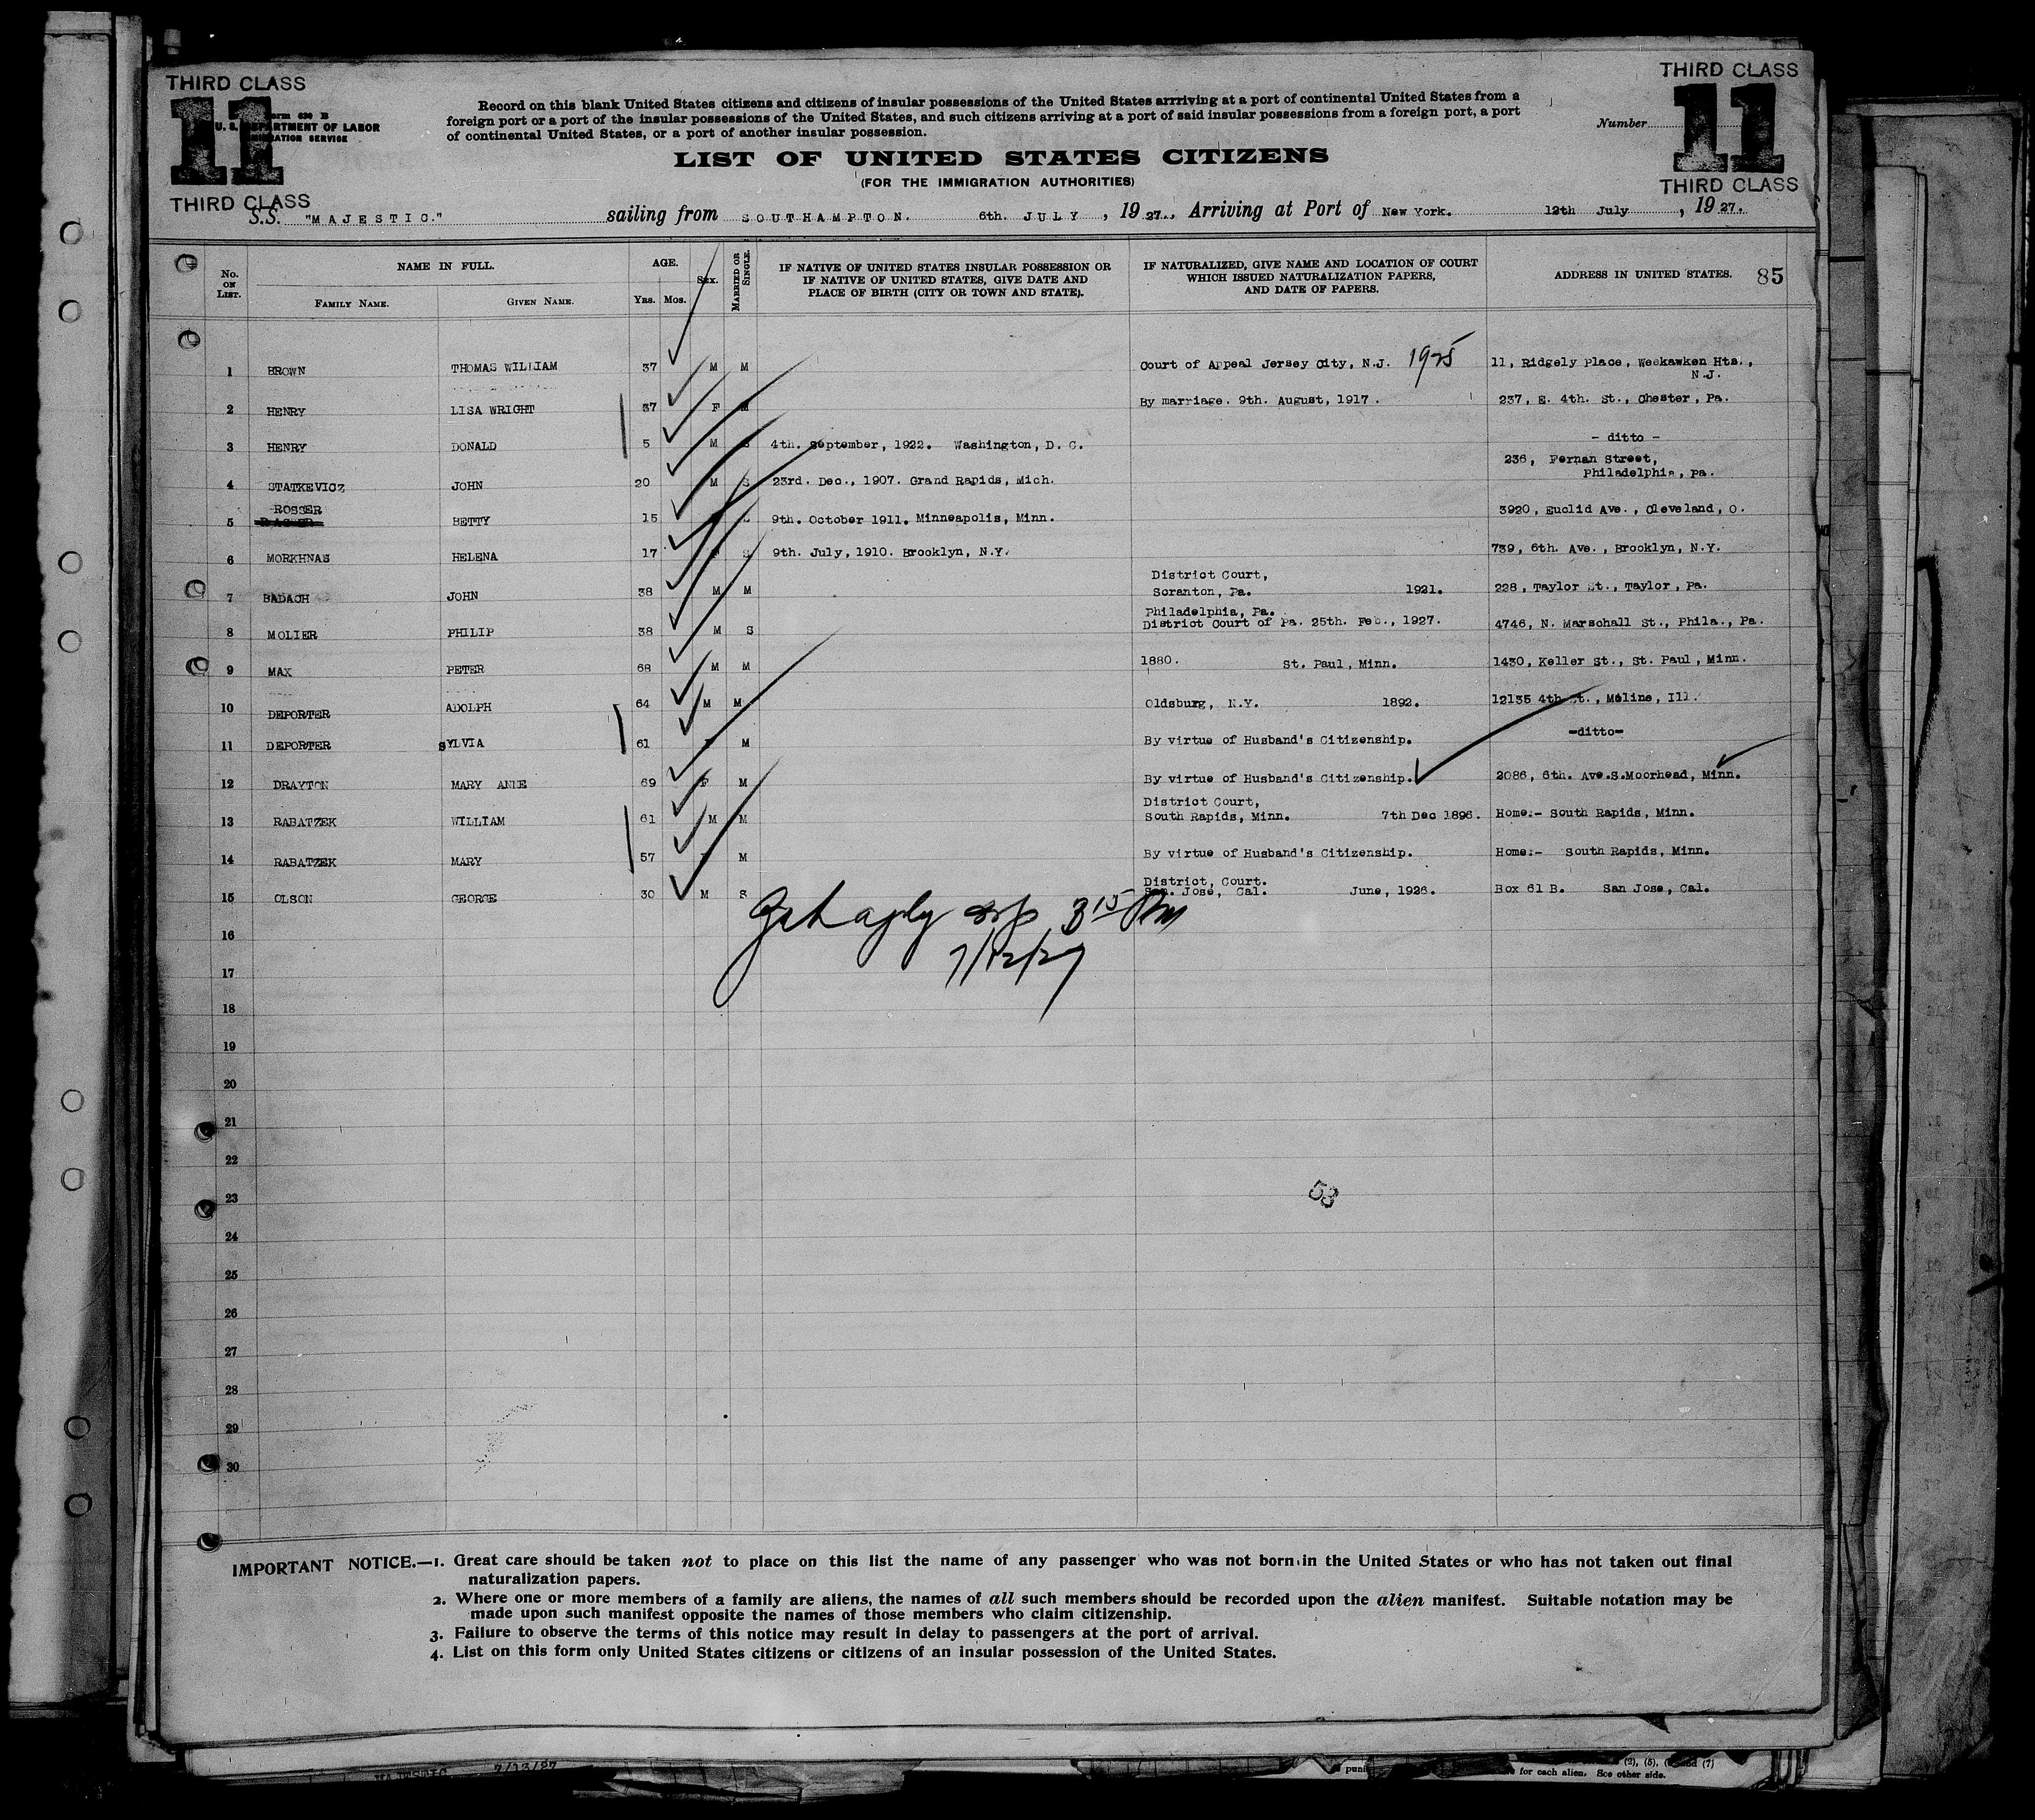 THIRD CLASS
THIRD CLASS
11
11
Form 630 B
U. S. DEPARTMENT OF LABOR
IMMIGRATION SERVICE
Record on this blank United States citizens and citizens of insular possessions of the United States arrriving at a port of continental United States from a
foreign port or a port of the insular possessions of the United States, and such citizens arriving at a port of said insular possessions from a foreign port, a port
of continental United States, or a port of another insular possession.
Number
LIST OF UNITED STATES CITIZENS
(FOR THE IMMIGRATION AUTHORITIES)
THIRD CLASS
THIRD CLASS
S.S. "MAJESTIC." sailing from SOUTHAMPTON. 6th. JULY, 1927., Arriving at Port of New York. 12th July, 1927.
No. ON LIST.
NAME IN FULL.
FAMILY NAME.
GIVEN NAME.
AGE.
YRS. MOS.
SEX.
MARRIED OR SINGLE.
IF NATIVE OF UNITED STATES INSULAR POSSESSION OR
IF NATIVE OF UNITED STATES, GIVE DATE AND
PLACE OF BIRTH (CITY OR TOWN AND STATE).
IF NATURALIZED, GIVE NAME AND LOCATION OF COURT
WHICH ISSUED NATURALIZATION PAPERS,
AND DATE OF PAPERS.
ADDRESS IN UNITED STATES. 85
1 BROWN THOMAS WILLIAM 37 M M Court of Appeal Jersey City, N.J. 1925 11, Ridgely Place, Weekawken Hts.,
N.J.
2 HENRY LISA WRIGHT 37 F M By marriage. 9th. August, 1917. 237, E. 4th. St., Chester, Pa.
3 HENRY DONALD 5 M S 4th. September, 1922. Washington, D. C. - ditto -
236, Fernan Street,
4 STATKEVICZ JOHN 20 M S 23rd. Dec., 1907. Grand Rapids, Mich. Philadelphia, Pa.
ROSSER
5 BETTY 15 9th. October 1911. Minneapolis, Minn. 3920, Euclid Ave., Cleveland, O.
6 MORKHNAS HELENA 17 F S 9th. July, 1910. Brooklyn, N.Y. 739, 6th. Ave., Brooklyn, N.Y.
District Court,
7 BADACH JOHN 38 M M Scranton, Pa. 1921. 228, Taylor St., Taylor, Pa.
Philadelphia, Pa.
8 MOLIER PHILIP 38 M S District Court of Pa. 25th. Feb., 1927. 4746, N. Marschall St., Phila., Pa.
9 MAX PETER 68 M M 1880. St. Paul, Minn. 1430, Keller St., St. Paul, Minn.
10 DEPORTER ADOLPH 64 M M Oldsburg, N.Y. 1892. 12135 4th St., Moline, Ill.
11 DEPORTER SYLVIA 61 F M By virtue of Husband's Citizenship. -ditto-
12 DRAYTON MARY ANNE 69 F M By virtue of Husband's Citizenship. 2086, 6th. Ave.S.Moorhead, Minn.
District Court,
13 RABATZEK WILLIAM 61 M M South Rapids, Minn. 7th Dec 1896. Home:- South Rapids, Minn.
14 RABATZEK MARY 57 F M By virtue of Husband's Citizenship. Home:- South Rapids, Minn.
District, Court.
15 OLSON GEORGE 30 M S San Jose, Cal. June, 1926. Box 61 B. San Jose, Cal.
3 15 Pm
16
7/12/27
17
18
19
20
21
22
23
53
24
25
26
27
28
29
30
IMPORTANT NOTICE.—1. Great care should be taken not to place on this list the name of any passenger who was not born in the United States or who has not taken out final
naturalization papers.
2. Where one or more members of a family are aliens, the names of all such members should be recorded upon the alien manifest. Suitable notation may be
made upon such manifest opposite the names of those members who claim citizenship.
3. Failure to observe the terms of this notice may result in delay to passengers at the port of arrival.
4. List on this form only United States citizens or citizens of an insular possession of the United States.
MAJESTIC 7/13/27
for each alien. See other side.